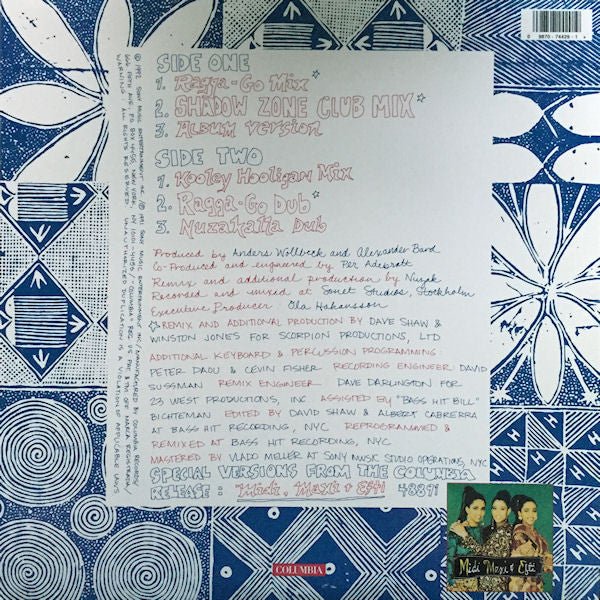 0 9870 - 74429 - 1
SIDE ONE
1. Ragga-Go Mix☆
2. SHADOW ZONE CLUB MIX☆
3. Album Version
SIDE TWO
1. Kooley Hooligan Mix
2. Ragga-Go Dub☆
3. Nuzakatta Dub
Produced by Anders Wollbeck and Alexander Bard
Co-Produced and engineered by Per Adebratt
Remix and additional production by Nuzak
Recorded and mixed at Sonet Studios, Stockholm
Executive Producer: Ola Hakansson
☆REMIX AND ADDITIONAL PRODUCTION BY DAVE SHAW &
WINSTON JONES FOR SCORPION PRODUCTIONS, LTD
ADDITIONAL KEYBOARD & PERCUSSION PROGRAMMING:
PETER DAOU & CEVIN FISHER RECORDING ENGINEER: DAVID
SUSSMAN REMIX ENGINEER DAVE DARLINGTON FOR
23 WEST PRODUCTIONS, INC ASSISTED BY "BASS HIT BILL"
BICHTEMAN EDITED BY DAVID SHAW & ALBERT CABRERRA
AT BASS HIT RECORDING, NYC REPROGRAMMED &
REMIXED AT BASS HIT RECORDING, NYC
MASTERED BY VLADO MELLER AT SONY MUSIC STUDIO OPERATIONS, NYC
SPECIAL VERSIONS FROM THE COLUMBIA
RELEASE: Midi, Maxi + Efti 48871
© 1992 SONY MUSIC ENTERTAINMENT INC./℗ 1991 SONY MUSIC ENTERTAINMENT INC./MANUFACTURED BY COLUMBIA RECORDS/
BOX 4455, NEW YORK, NY 10101-4450/"COLUMBIA" REG US PAT & TM OFF MARCA REGISTRADA
WARNING: ALL RIGHTS RESERVED. UNAUTHORIZED DUPLICATION IS A VIOLATION OF APPLICABLE LAWS
COLUMBIA
Midi Maxi & Efti